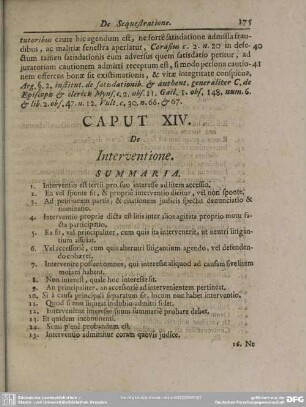 De Sequestratione. 175
tutoribus caute hic agendum est, ne forte satisdatione admissa frau-
dibus, ac malitiæ fenestra aperiatur, Corasius c. 2. n. 20 in defe- 40
ctum tamen satisdationis cum adversus quem satisdatio petitur, ad
juratoriam cautionem admitti receptum est, si modo persona cautio- 41
nem offerens bonæ sit existimationis, & vitæ integritate conspicua,
Arg. §. 2. institut. de satisdationib. & authent. generaliter C. de
Episcopis & clericis Mynf. c. 2. obs. 11. Gail. 1. obs. 148. num. 6.
& lib. 2. obs. 47. n. 12. Vult. c. 30. n. 66. & 67.
CAPUT XIV.
De
Interventione.
SUMMARIA.
1. Interventio est tertii pro suo interesse ad litem accessio.
2. Ea vel sponte fit, & proprie interventio dicitur, vel non sponte,
3. Ad petitionem partis, & citationem judicis spectat denunciatio &
nominatio.
4. Interventio proprie dicta est litis inter alios agitatæ proprio motu fa-
cta participatio,
5. Ea fit, vel principaliter, cum quis ita intervenerit, ut neutri litigan-
tium assistat.
6. Vel accessorie, cum quis alterutri litigantium agendo, vel defenden-
do cohæret.
7. Intervenire possunt omnes, qui interesse aliquod ad causam sive litem
motam habent.
8. Non interest, quale hoc interesse sit.
9. An principaliter, an accessorie ad intervenientem pertineat.
10. Si à causa principali separatum sit, locum non habet interventio.
11. Quod si non liqueat indubio admitti solet.
12. Interveniens interesse suum summarie probare debet.
13. Et quidem incontinenti.
14. Semi plene probandum est.
15. Interventio admittitur coram quovis judice.
16. Ne